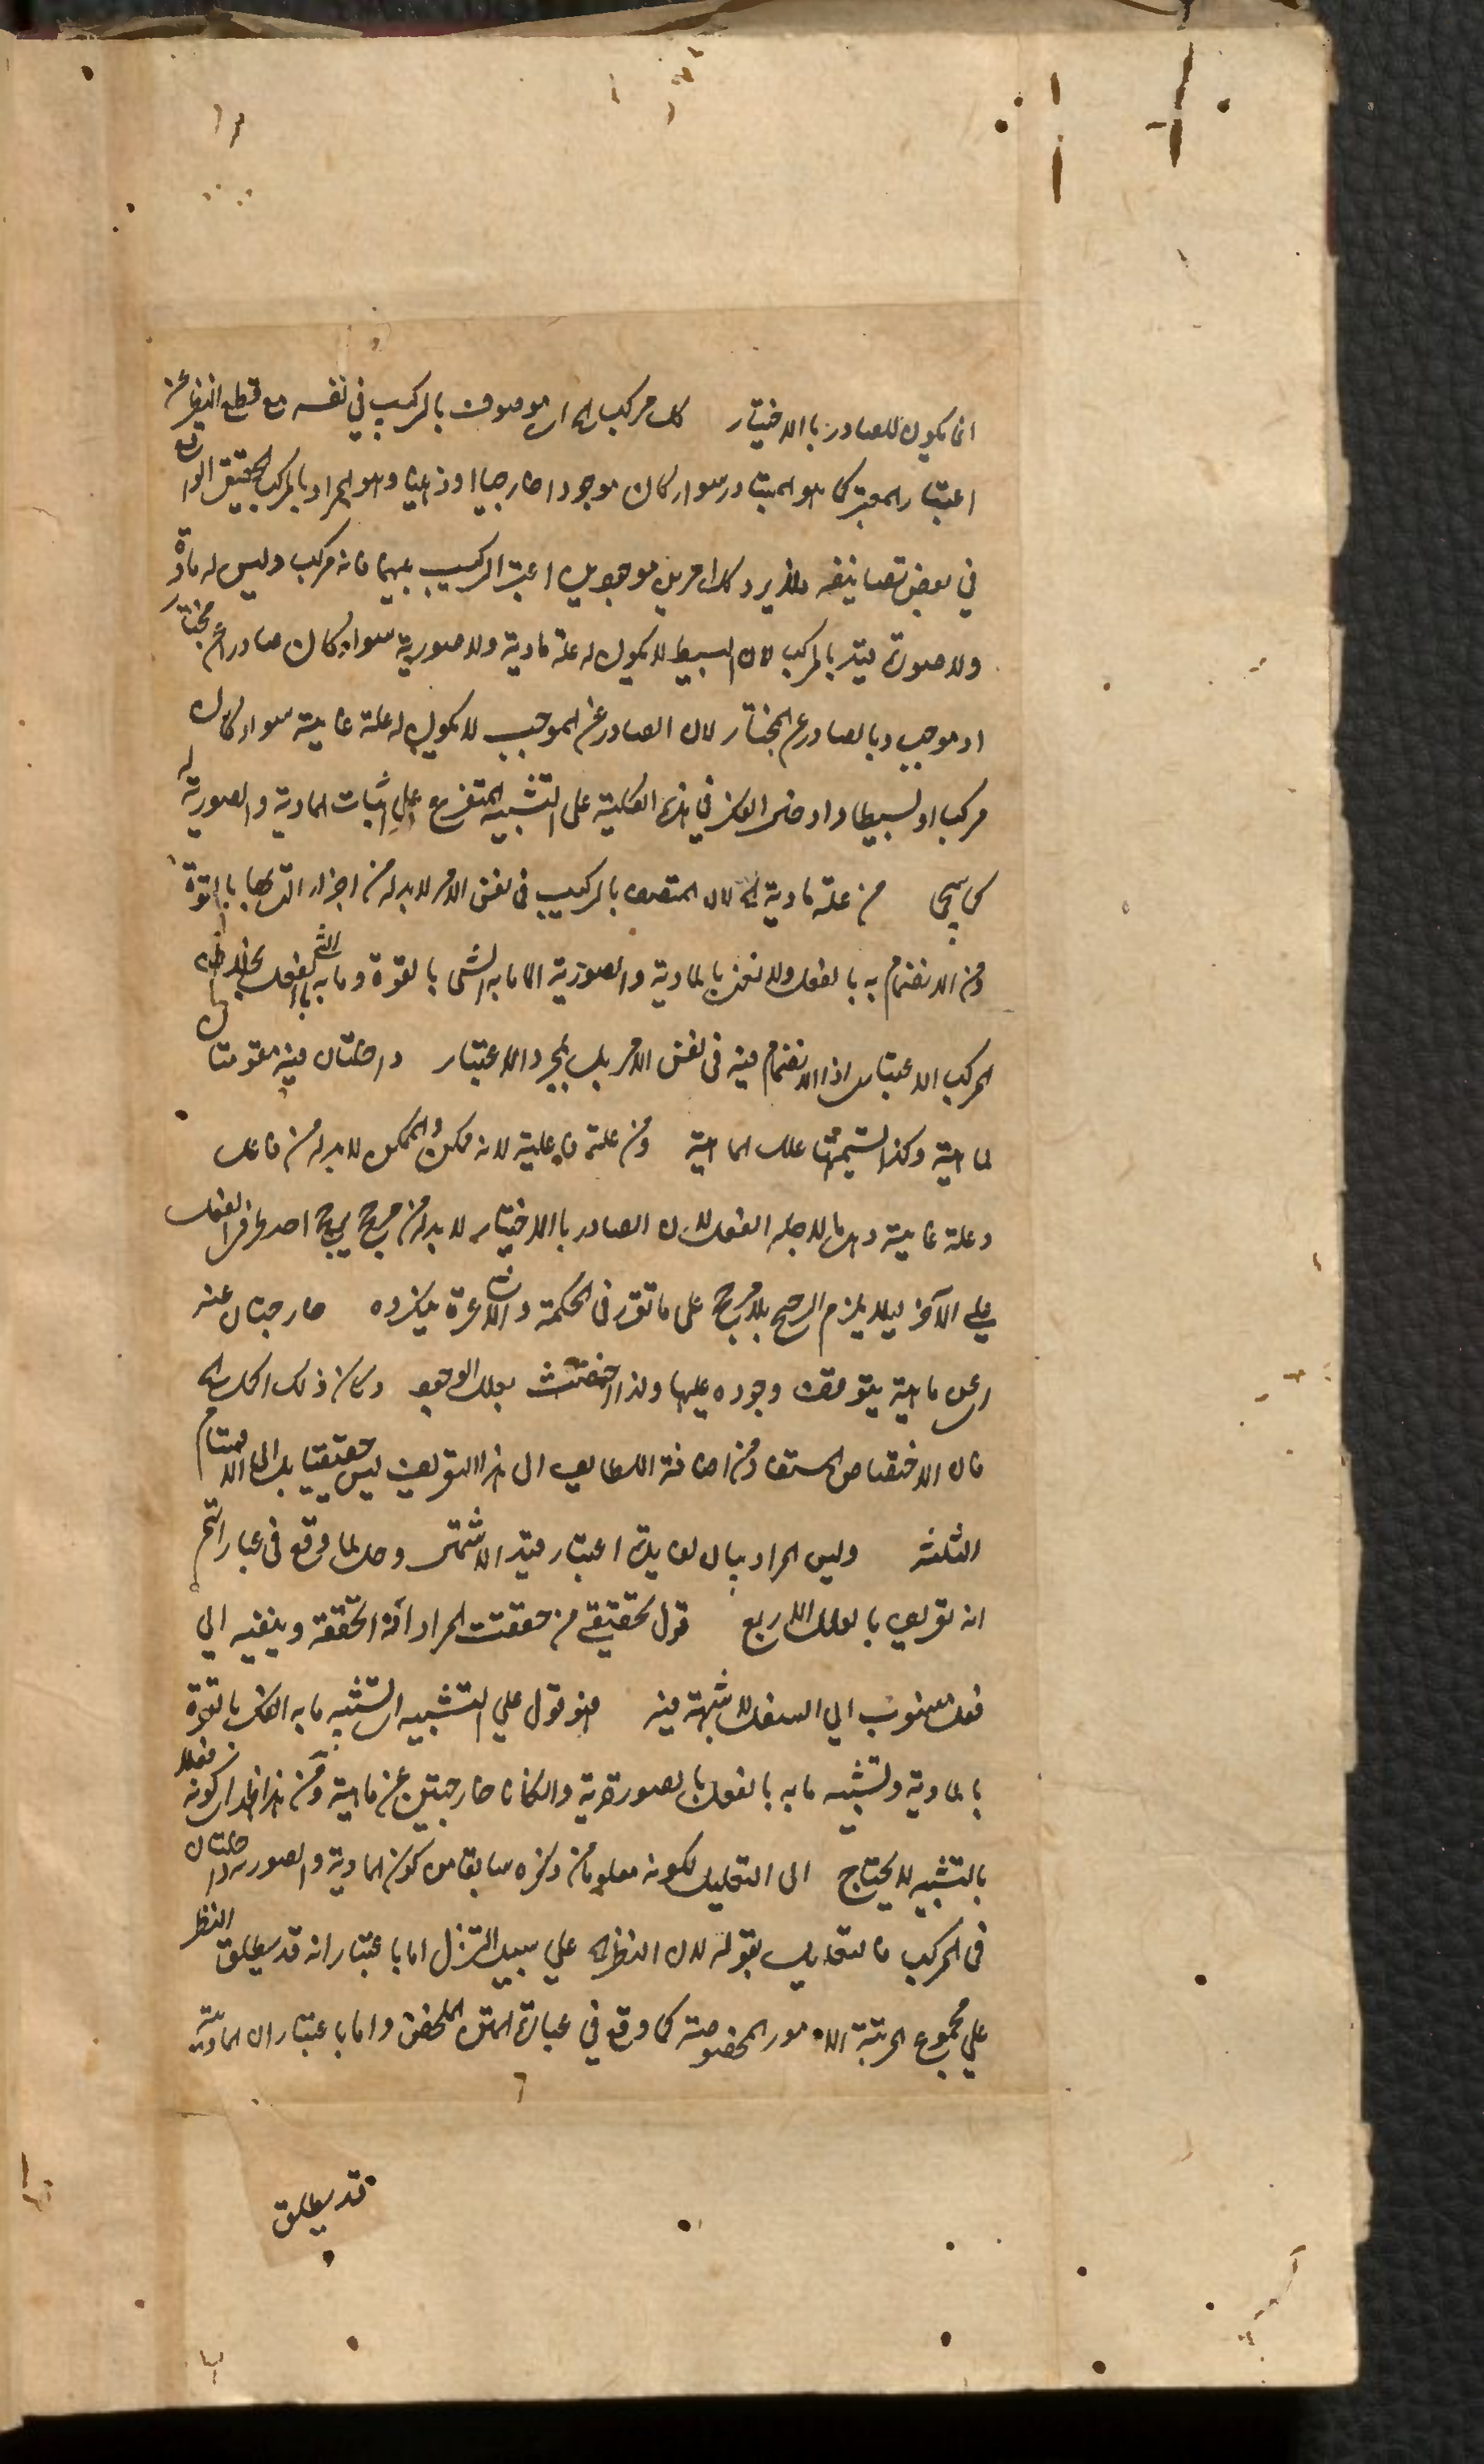 انما يكون للصادر بالاختيار كل مركب الخ اى موصوف بالتركيب في نفسه مع قطع النظر عن
اعتبار المعتبر كما هو المتبادر سواء كان موجودا خارجيا او ذهنيا وهو المراد بالمركب الحقيقي الواقع
في بعض تصانيفه فلا يرد كل امرين موجودين اعتبر التركيب بينهما فانه مركب وليس له مادة
ولا صورة قيد بالمركب لان البسيط لا يكون له علة مادية ولا صورية سواء كان صادرا عن مختار
او موجب وبالصادر عن المختار لان الصادر عن الموجب لا يكون له علة غائية سواء كان
مركبا او بسيطا وادخل الفكر في هذه الكلية على التشبيه المتفرع على اثبات المادية والصورية له
كما سيجئ من علة مادية الخ لان المتصف بالتركيب في نفس الامر لابد له من اجزاء التى بها بالقوة
ومن الانضمام به بالفعل ولا نعنى بالمادية والصورية الا ما به الشئ بالقوة وما به الشئ بالفعل بخلاف
المركب الاعتبارى اذ لا انضمام فيه في نفس الامر بل بمجرد الاعتبار داخلتان فيه مقومتان
لماهيته وكذا تسميتهما علل الماهية ومن علة فاعلية لانه ممكن والممكن لابد له من فاعل
وعلة غائية وهى ما لاجله الفعل لان الصادر بالاختيار لابد له من مرجح يرجح احد طرفى الفعل
على الآخر لئلا يلزم الترجيح بلا مرجح على ما تقرر في الحكمة والاشاعرة ينكرونه خارجتان عنه
اى عن ماهيته يتوقف وجوده عليها ولذا اختصت بعلل الوجود وكان ذلك الكل الخ
فان الاختصاص المستفاد من اضافة اللطايف الى هذا التعريف ليس حقيقيا بل الى الاقسام
الثلثة وليس المراد بيان لفائدة اعتبار قيد الاشتمال وحمل لما وقع في عباراتهم
انه تعريف بالعلل الاربع قوله تحقيقي من حققت المراد انه الحققة وينفيه الى
فعل منسوب الى السفل لا شبهة فيه فهو قول على التشبيه اى تشبيه ما به الفكر بالقوة
بالمادية وتشبيه ما به بالفعل بالصورية والكانا خارجتين عن ماهيته ومن هذا ظهر ان كونه فعلا
بالتشبيه لا يحتاج الى التعليل لكونه معلوما من ذكره سابقا من كون المادية والصورية داخلتان
في المركب فالتعليل بقوله لان النظر الخ على سبيل التنزل اما باعتبار انه قد يطلق النظر
على مجموع المرتبة الامور المخصوصة كما وقع في عبارة المتن الملخص واما باعتبار ان المادية
قد يطلق